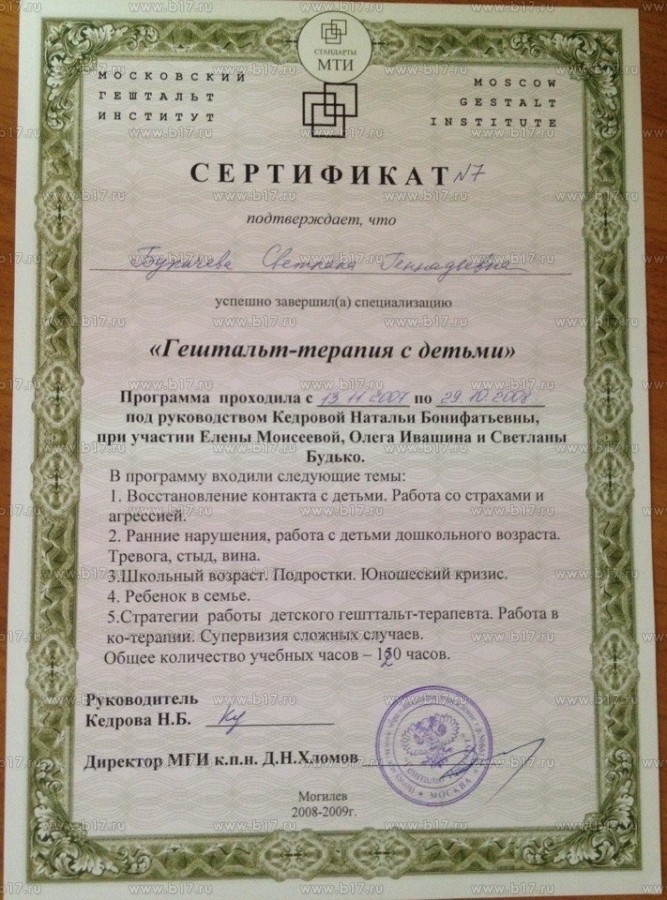 СТАНДАРТЫ
МГИ
МОСКОВСКИЙ
ГЕШТАЛЬТ
ИНСТИТУТ
MOSCOW
GESTALT
INSTITUTE
СЕРТИФИКАТ №7
подтверждает, что
Светлана Геннадьевна
успешно завершил(а) специализацию
«Гештальт-терапия с детьми»
Программа проходила с 13 11 2007 по 29.10.2008
под руководством Кедровой Натальи Бонифатьевны,
при участии Елены Моисеевой, Олега Ивашина и Светланы
Будько.
В программу входили следующие темы:
1. Восстановление контакта с детьми. Работа со страхами и
агрессией.
2. Ранние нарушения, работа с детьми дошкольного возраста.
Тревога, стыд, вина.
3.Школьный возраст. Подростки. Юношеский кризис.
4. Ребенок в семье.
5.Стратегии работы детского гешттальт-терапевта. Работа в
ко-терапии. Супервизия сложных случаев.
Общее количество учебных часов – 120 часов.
Руководитель
Кедрова Н.Б.
Директор МГИ к.п.н. Д.Н.Хломов
МОСКВА
Могилев
2008-2009г.
www.b17.ru